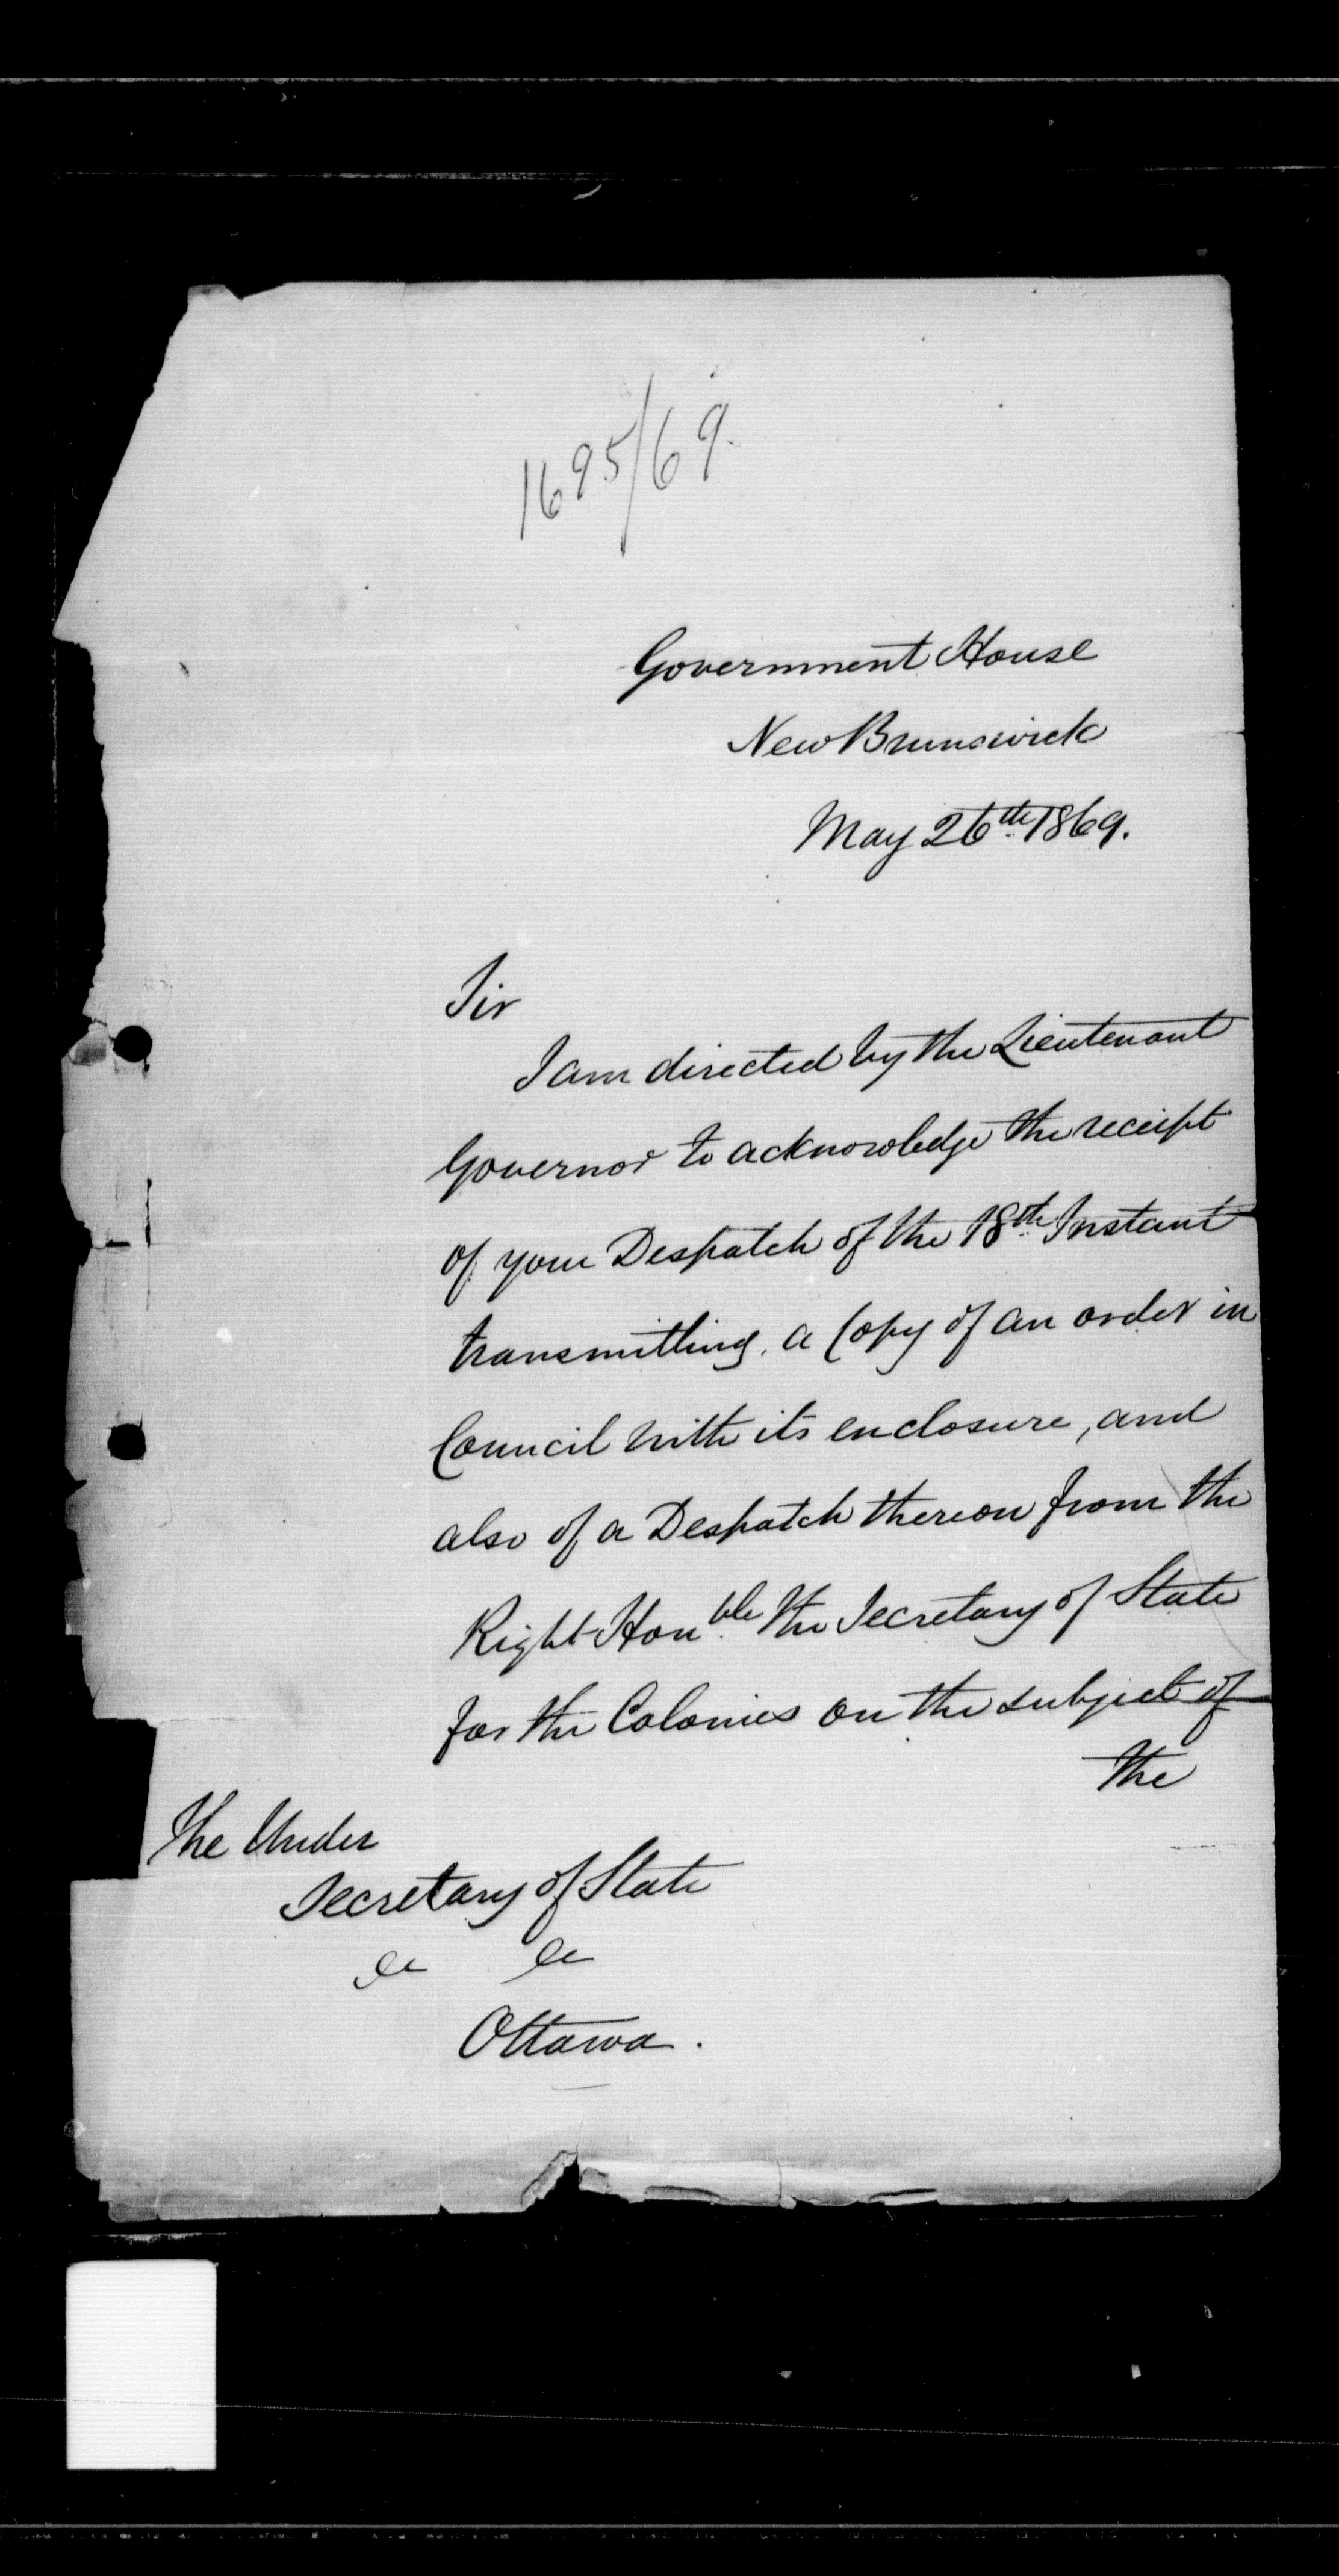 1695/69.
Government House
New Brunswick
May 26th 1869.
Sir
I am directed by the Lieutenant
Governor to acknowledge the receipt
of your Despatch of the 18th Instant
transmitting, a Copy of an order in
Council with its enclosure, and
also of a Despatch thereon from the
Right Honble the Secretary of State
for the Colonies on the subject of
the
The Under
Secretary of State
&c &c
Ottawa.